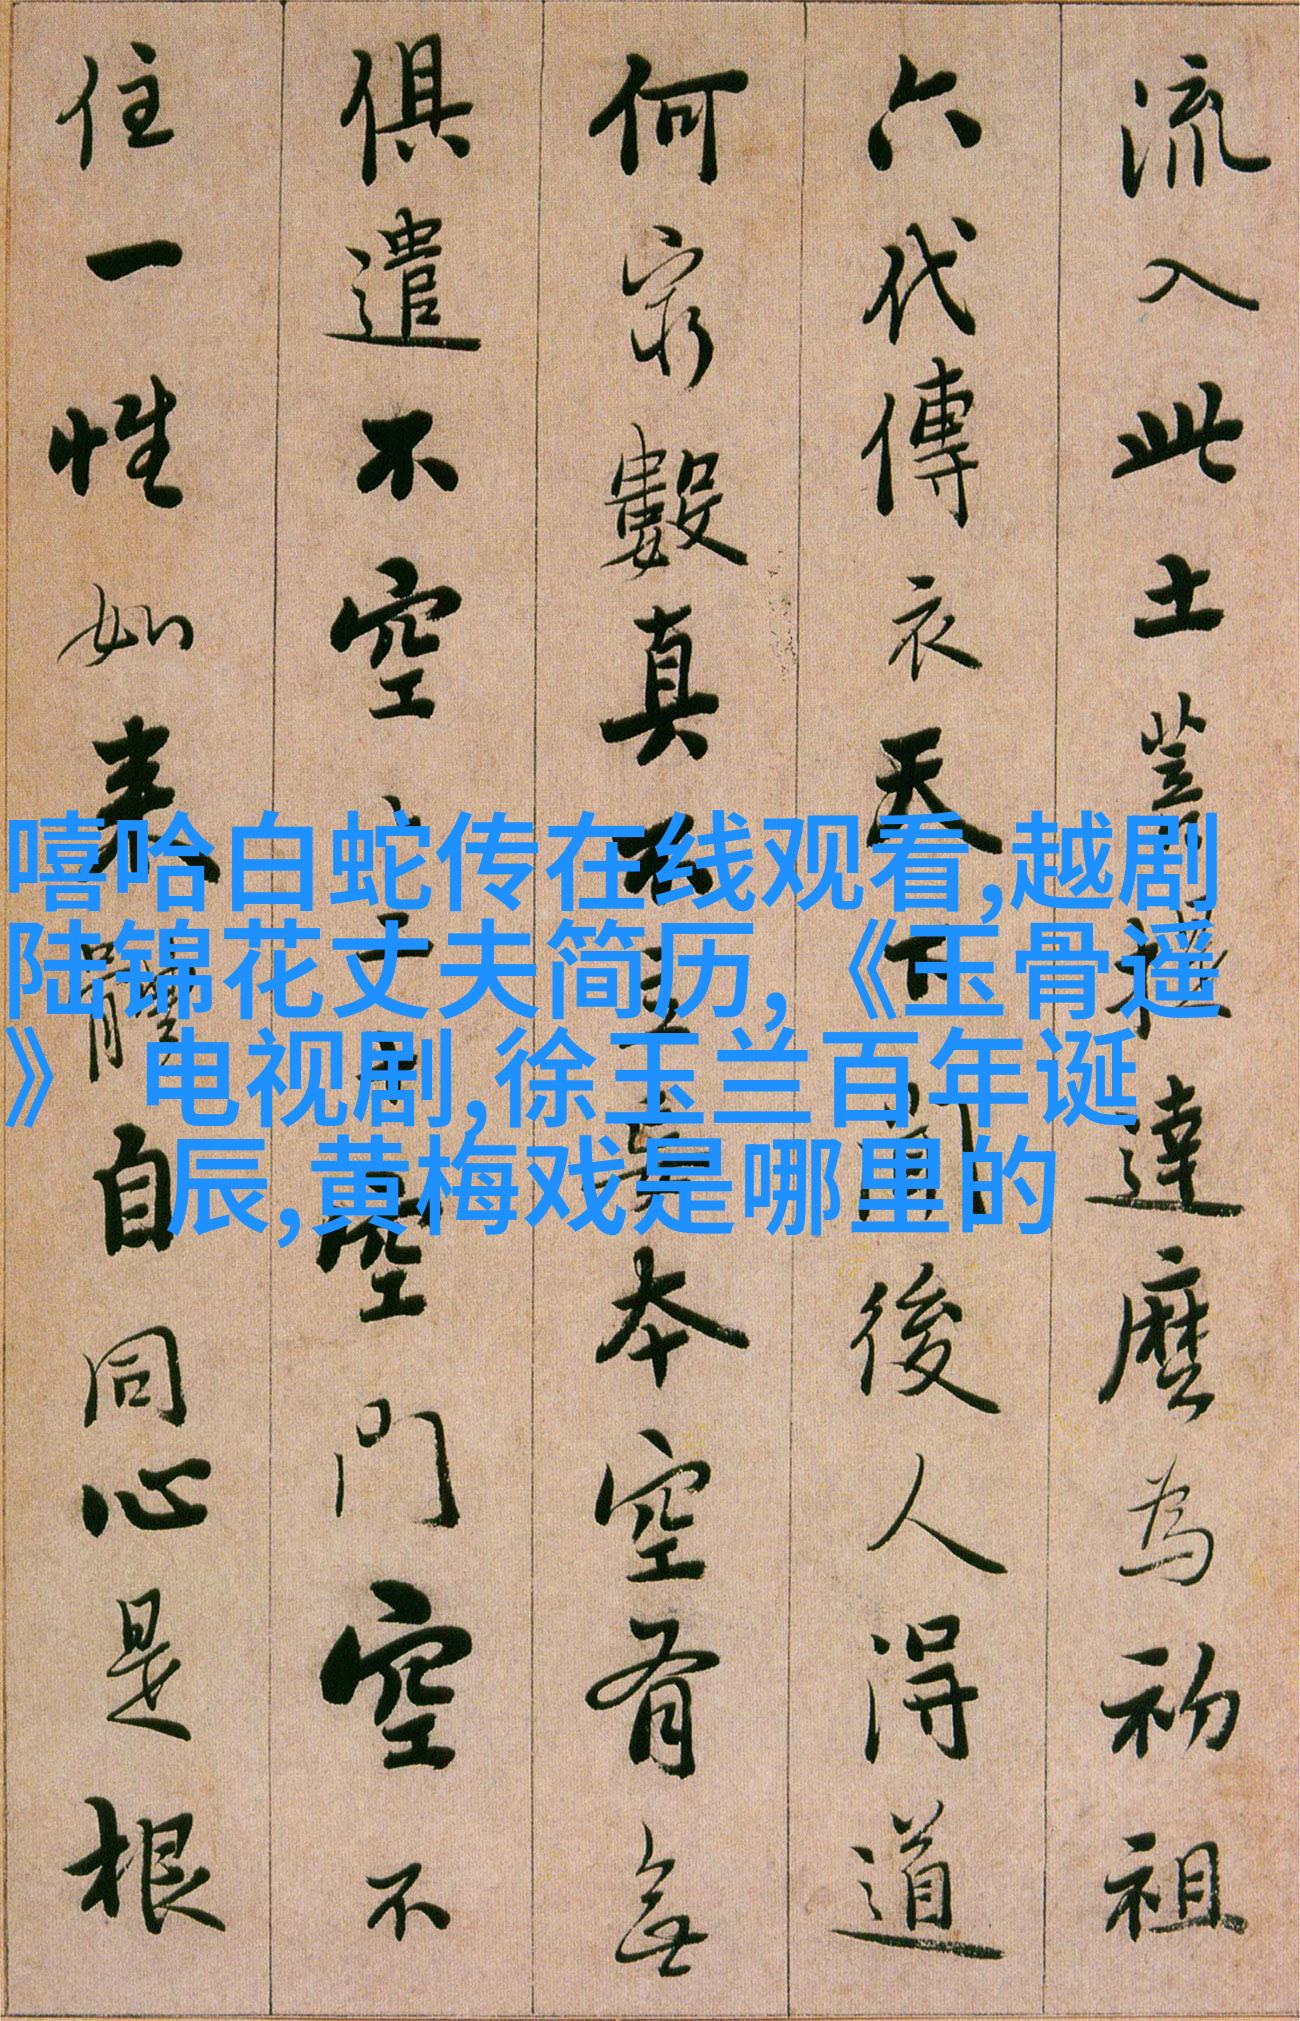 流入此土菩提達麼為初祖
六代傳衣天下聞後人得道
何窮數真不立妄本空有無
俱遣不空二十空門空不
住一性如来體自同心是根
嘻哈白蛇传在线观看,越剧
陆锦花丈夫简历,《玉骨遥
》 电视剧,徐玉兰百年诞
辰,黄梅戏是哪里的